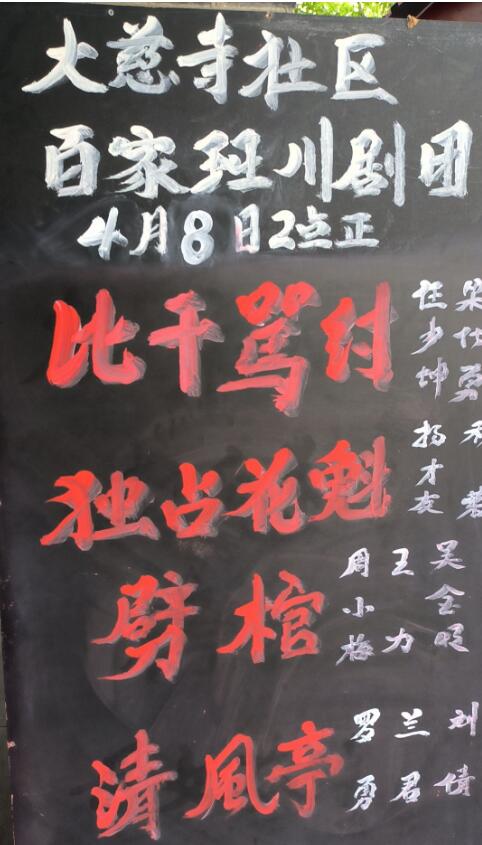 大慈寺社区
百家班川剧团
4月8日2点正
比干骂纣
汪少坤
杨才友
独占花魁
劈棺
周小梅 王力 吴全明
清風亭
罗勇 兰君 刘倩